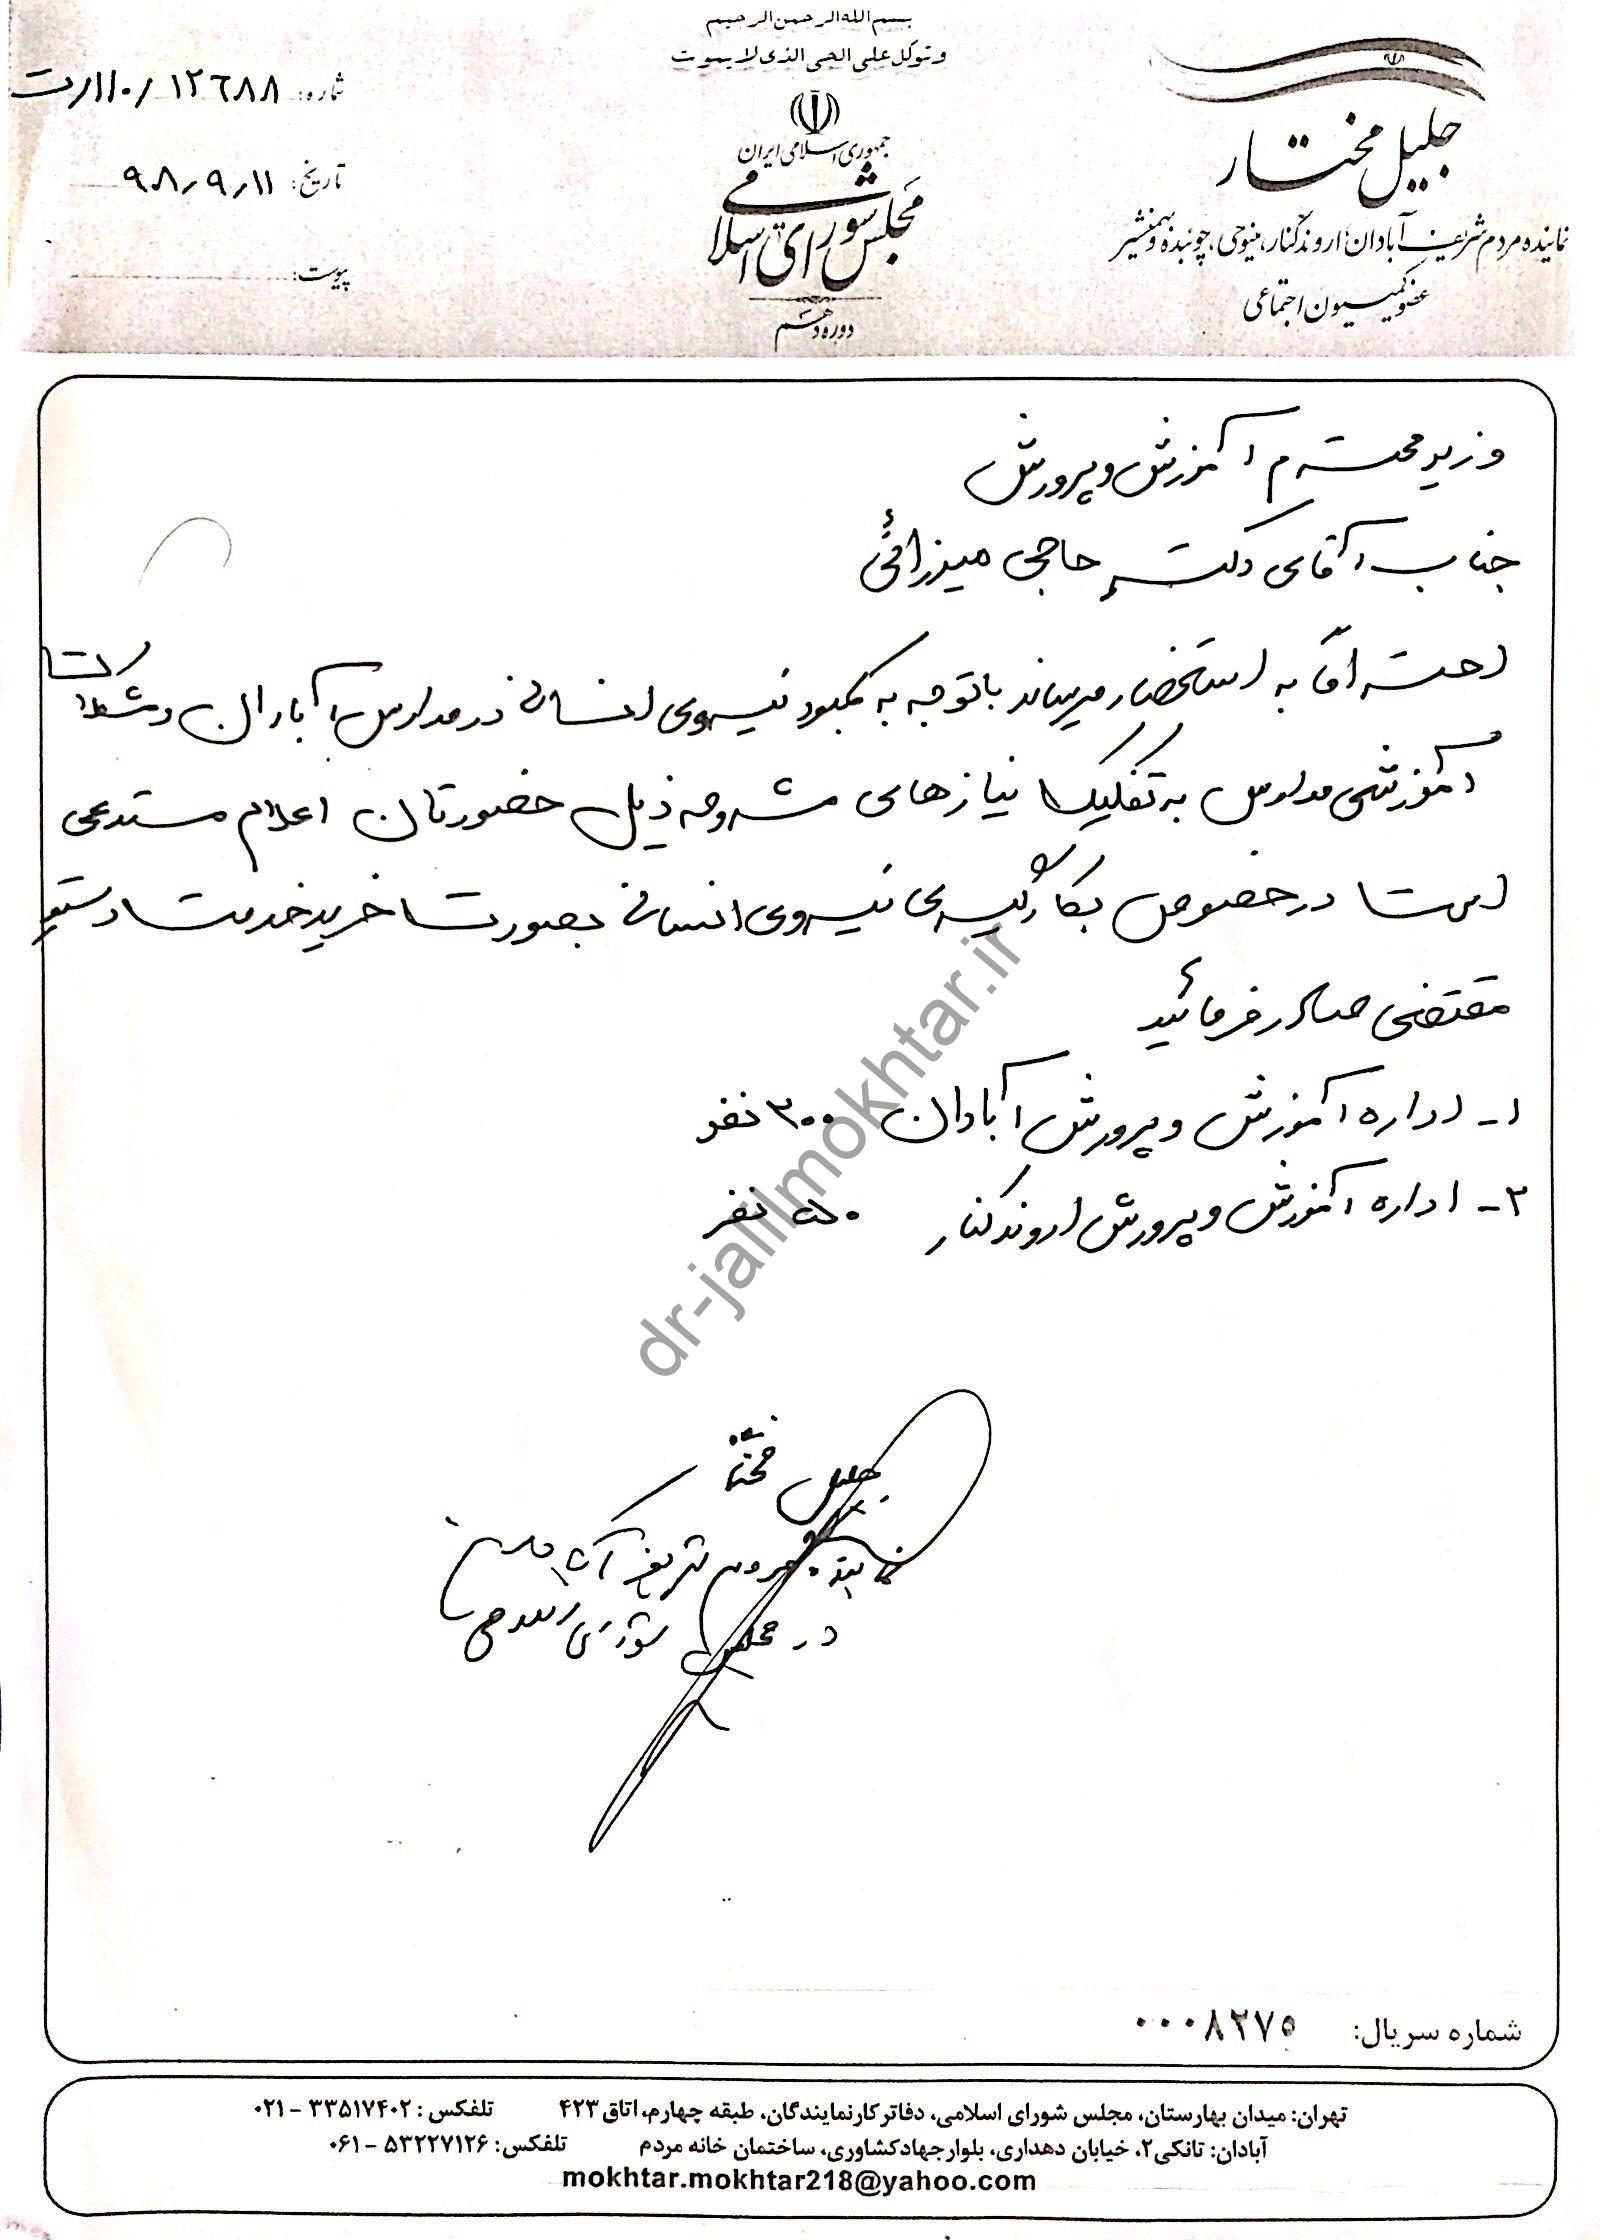 بسم الله الرحمن الرحیم
وتوکل علی الحی الذی لایموت
جمهوری اسلامی ایران
مجلس شورای اسلامی
دوره دهم
جلیل مختار
نماینده مردم شریف آبادان، اروندکنار، مینوحی، چوئبده و بهمنشیر
عضو کمیسیون اجتماعی
شماره: ۱۲۶۸۸/۱۱۰/ت
تاریخ: ۹۸/۹/۱۱
پیوست:
وزیر محترم آموزش و پرورش
جناب آقای دکتر حاجی میرزائی
احتراماً به استحضار میرساند باتوجه به کمبود نیروی انسانی در مدارس آبادان و مشکلات
آموزشی مدارس به تفکیک نیازهای مشروحه ذیل حضورتان اعلام مستدعی
است در خصوص بکارگیری نیروی انسانی بصورت خرید خدمت دستور
مقتضی صادر فرمائید
۱- اداره آموزش و پرورش آبادان ۳۰۰ نفر
۲- اداره آموزش و پرورش اروندکنار ۵۰ نفر
dr-jalilmokhtar.ir
جلیل مختار
نماینده مردم شریف آبادان
در مجلس شورای اسلامی
شماره سریال: ۰۰۰۸۲۷۵
تهران: میدان بهارستان، مجلس شورای اسلامی، دفاتر کار نمایندگان، طبقه چهارم، اتاق ۴۲۳ تلفکس: ۳۳۵۱۷۴۰۲ - ۰۲۱
آبادان: تانکی۲، خیابان دهداری، بلوار جهاد کشاورزی، ساختمان خانه مردم تلفکس: ۵۳۲۲۷۱۲۶ - ۰۶۱
mokhtar.mokhtar218@yahoo.com